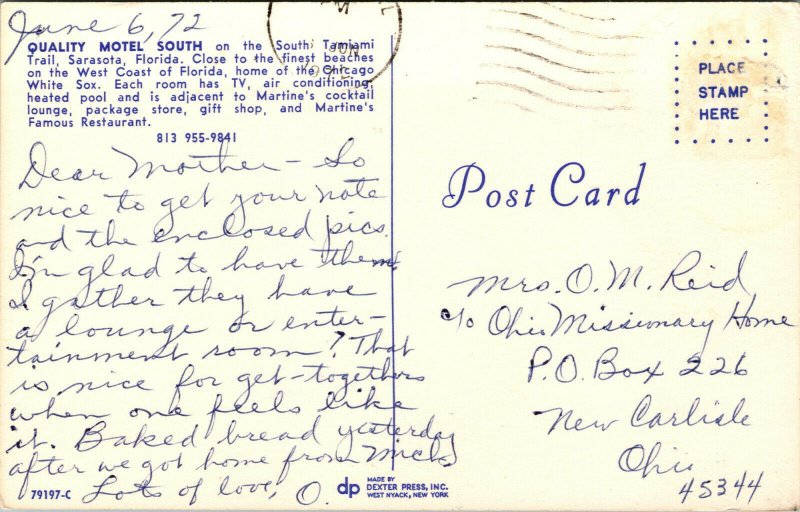 June 6, 72
QUALITY MOTEL SOUTH on the South Tamiami
Trail, Sarasota, Florida. Close to the finest beaches
on the West Coast of Florida, home of the Chicago
White Sox. Each room has TV, air conditioning,
heated pool and is adjacent to Martine's cocktail
lounge, package store, gift shop, and Martine's
Famous Restaurant.
813 955-9841
Dear Mother - So
nice to get your note
and the enclosed pics.
I'm glad to have them.
I gather they have
a lounge or enter-
tainment room? That
is nice for get-togethers
when one feels like
it. Baked bread yesterday
after we got home from Micks
Lots of love, O.
79197-C
dp
MADE BY
DEXTER PRESS, INC.
WEST NYACK, NEW YORK
PLACE
STAMP
HERE
Post Card
Mrs. O. M. Reid
c/o Ohio Missionary Home
P.O. Box 226
New Carlisle
Ohio
45344